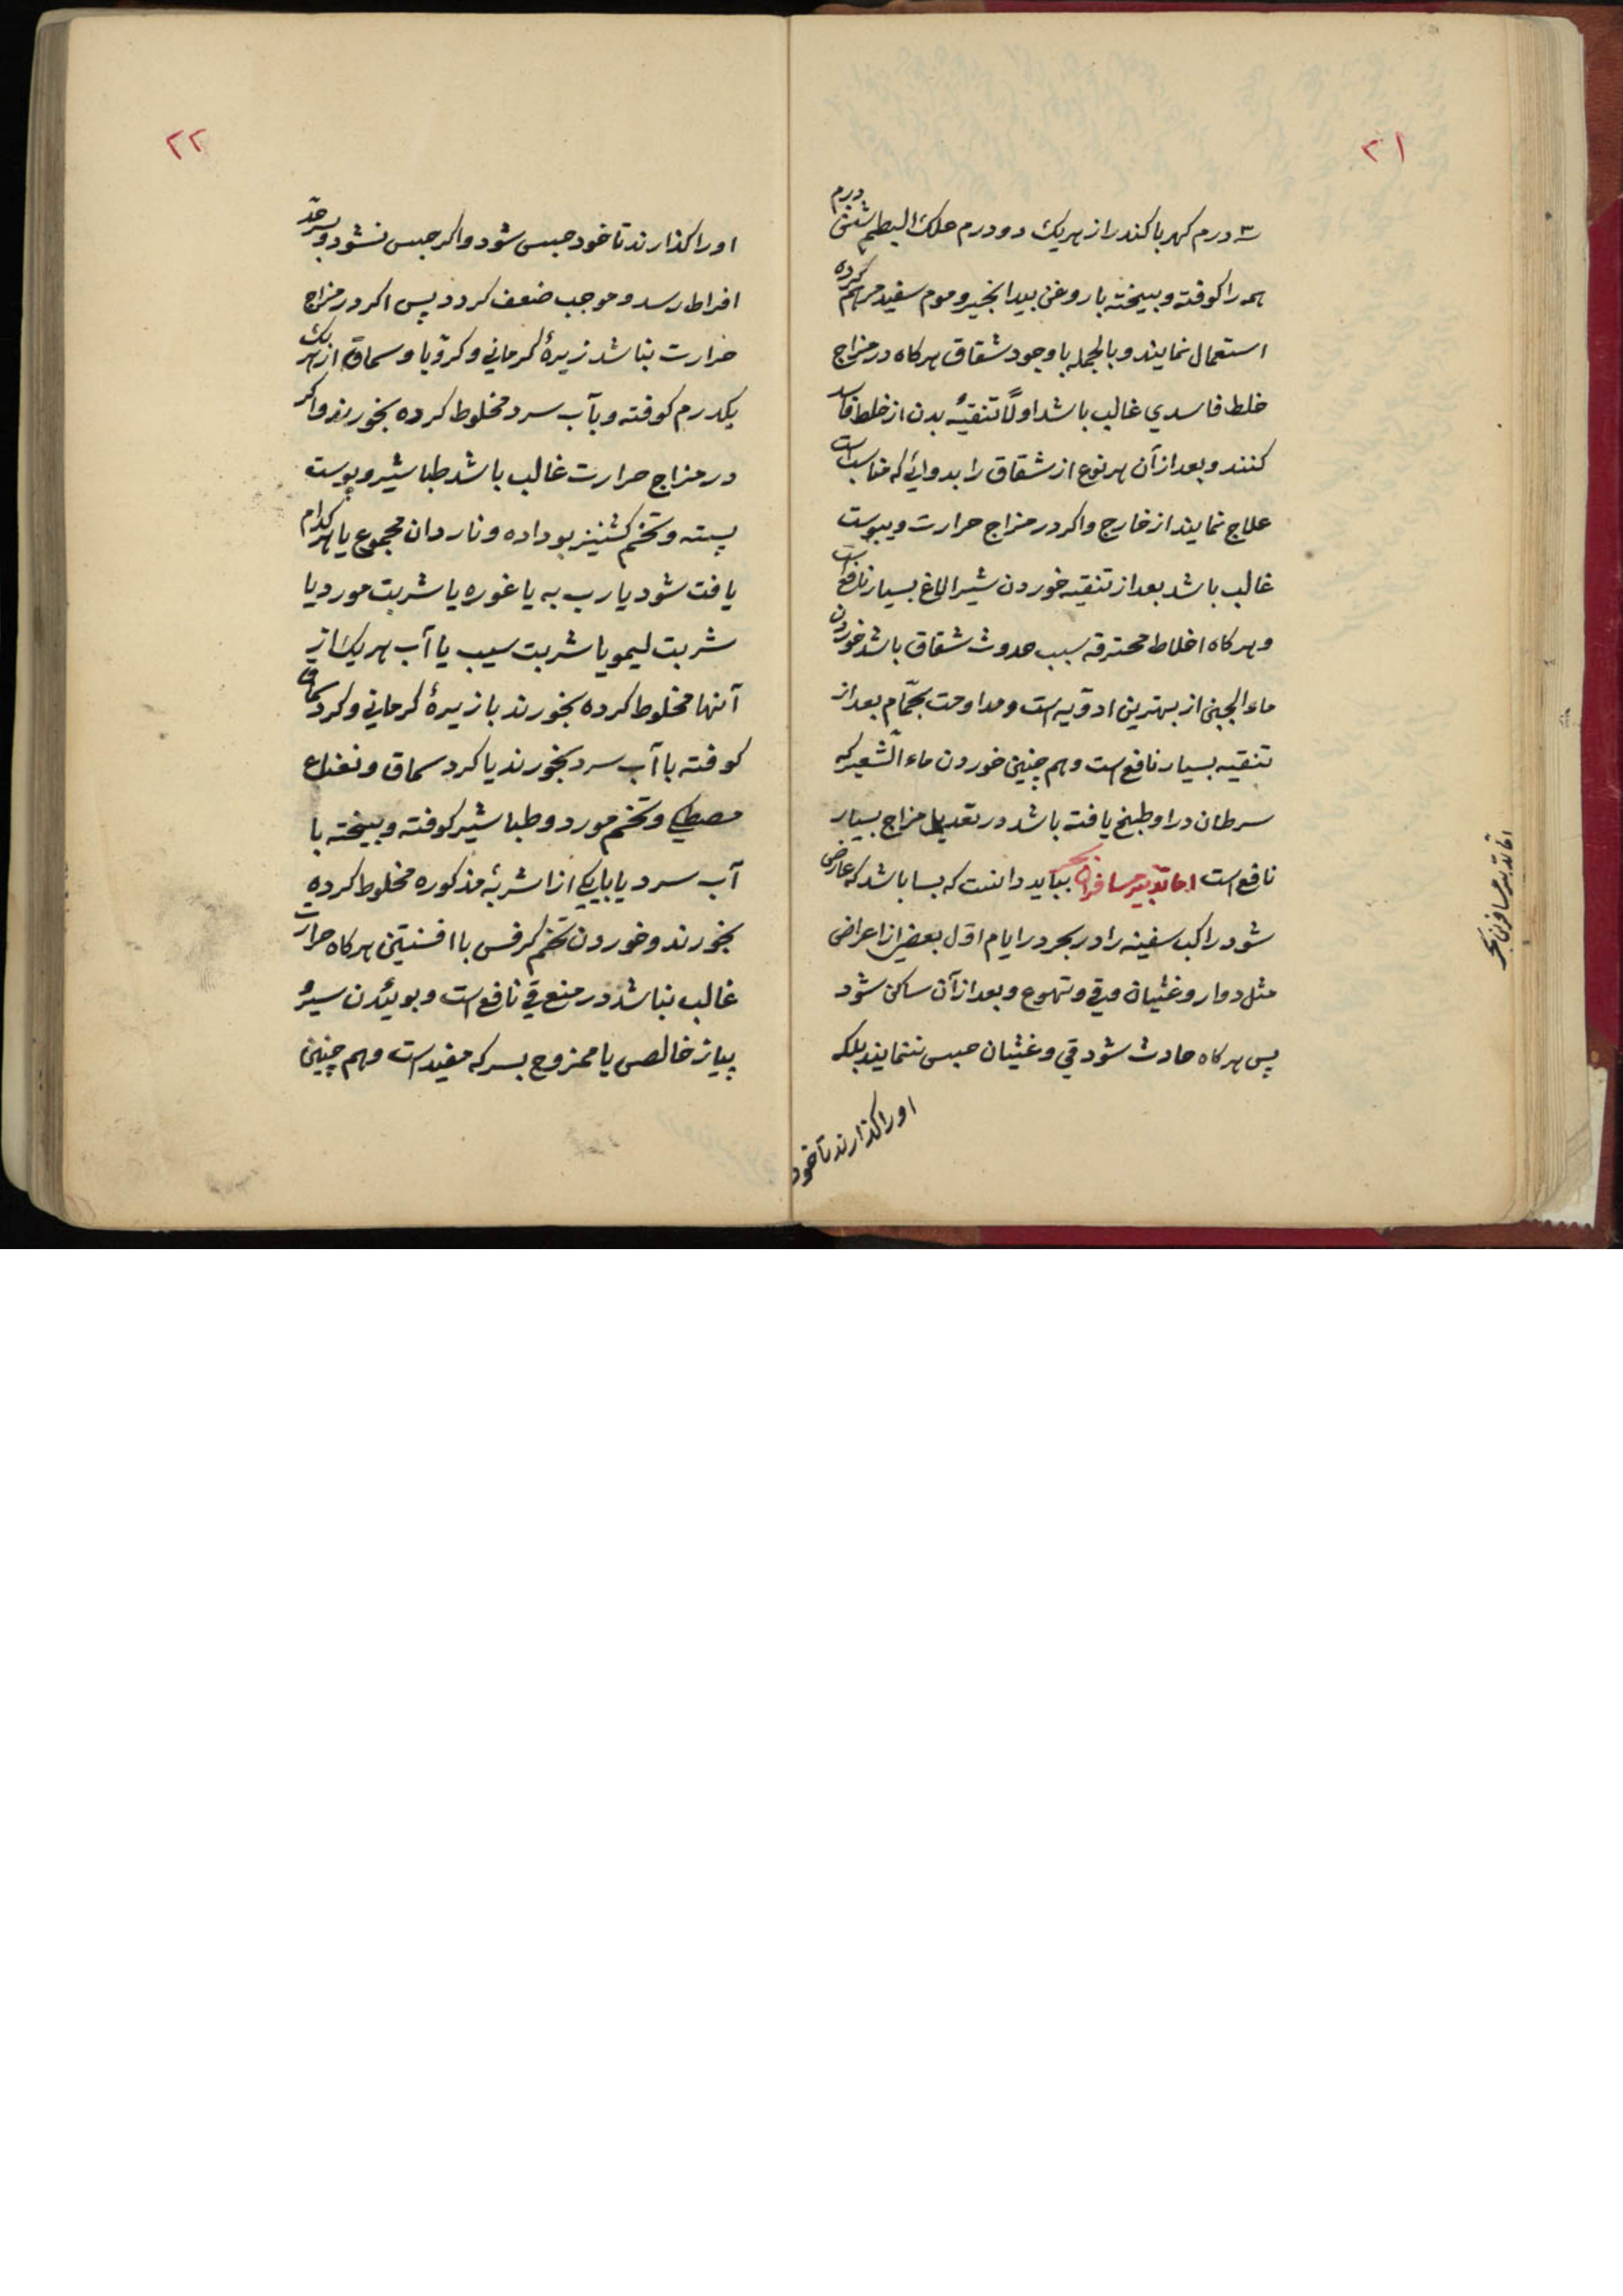 ۲۱
۳ درم کهربا کندر از هریک دو درم علک البطم شش درم
همه را کوفته و بیخته با روغن بیدانجیر و موم سفید مرهم کرده
استعمال نمایند و بالجمله با وجود شقاق هرکاه در مزاج
خلط فاسدي غالب باشد اولًا تنقیهٔ بدن از خلط فاسد
کنند و بعد از آن هر نوع از شقاق را بدوائي که مناسب است
علاج نمایند از خارج و اکر در مزاج حرارت و یبوست
غالب باشد بعد از تنقیه خوردن شیر الاغ بسیار نافع است
و هرکاه اخلاط محترقه سبب حدوث شقاق باشد خوردن
ماء الجبن از بهترین ادویه است و مداومت بحمّام بعد از
تنقیه بسیار نافع است و هم چنین خوردن ماء الشعیر که
سرطان در او طبخ یافته باشد در تعدیل مزاج بسیار
نافع است اما تدبیر مسافران بحر بباید دانست که بسا باشد که عارض
شود راکب سفینه را در بحر در ایام اوّل بعضي از اعراض
مثل دوار و غثیان و قي و تهوع و بعد از آن ساکن شود
پس هرکاه حادث شود قي و غثیان حبس ننمایند بلکه
او را کذارند تا خود
اما تدبیر مسافران بحر
۲۲
او را کذارند تا خود حبس شود و اکر حبس نشود و بسرحدّ
افراط رسد و موجب ضعف کردد پس اکر در مزاج
حرارت نباشد زیرهٔ کرماني و کرّویا و سماق از هر یک
یکدرم کوفته و بآب سرد مخلوط کرده بخورند و اکر
در مزاج حرارت غالب باشد طباشیر و پوست
پسته و تخم کشنیز بو داده و ناردان مجموع یا هر کدام
یافت شود یا رب به یا غوره یا شربت مورد یا
شربت لیمو یا شربت سیب یا آب هر یک از
آنها مخلوط کرده بخورند با زیرهٔ کرماني و کرد سماق
کوفته با آب سرد بخورند یا کرد سماق و نعناع
مصطکي و تخم مورد و طباشیر کوفته و بیخته با
آب سرد یا بایکي از اشربهٔ مذکوره مخلوط کرده
بخورند و خوردن تخم کرفس با افسنتین هرکاه حرارت
غالب نباشد در منع قي نافع است و بوئیدن سیر و
پیاز خالص یا ممزوج بسرکه مفید است و هم چنین